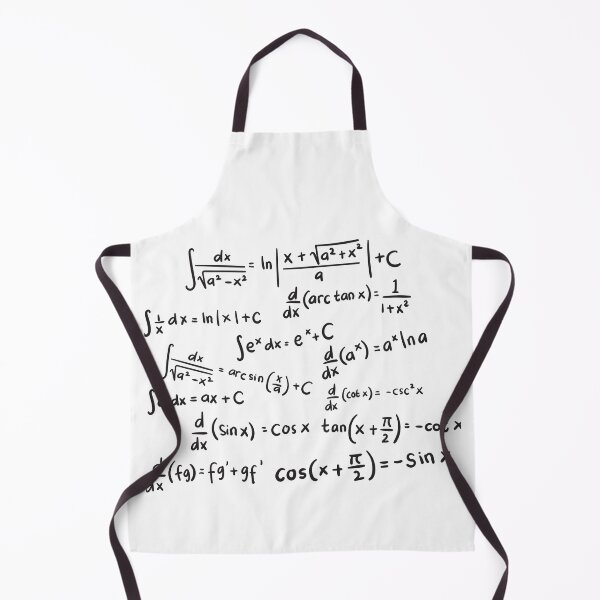 ∫ dx/√(a²-x²) = ln|(x+√(a²+x²))/a|+C
d/dx(arctanx)=1/(1+x²)
∫1/x dx=ln|x|+C
∫eˣdx=eˣ+C
d/dx(aˣ)=aˣlna
∫dx/√(a²-x²) = arcsin(x/a)+C
d/dx(cotx)=-csc²x
dx=ax+C
d/dx(Sinx)=Cosx
tan(x+π/2)=-co x
d/dx(fg)=fg'+gf'
cos(x+π/2)=-Sinx